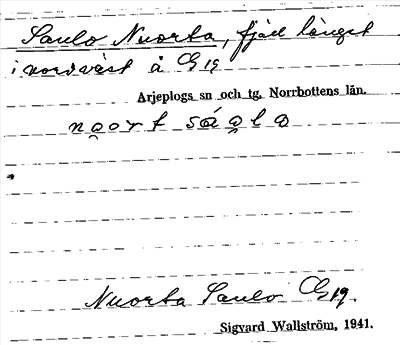 Saulo Nuorta, fjäll längst
i nordväst å C 19
Arjeplogs sn och tg. Norrbottens län.
Nuorta Saulo C 19.
Sigvard Wallström, 1941.